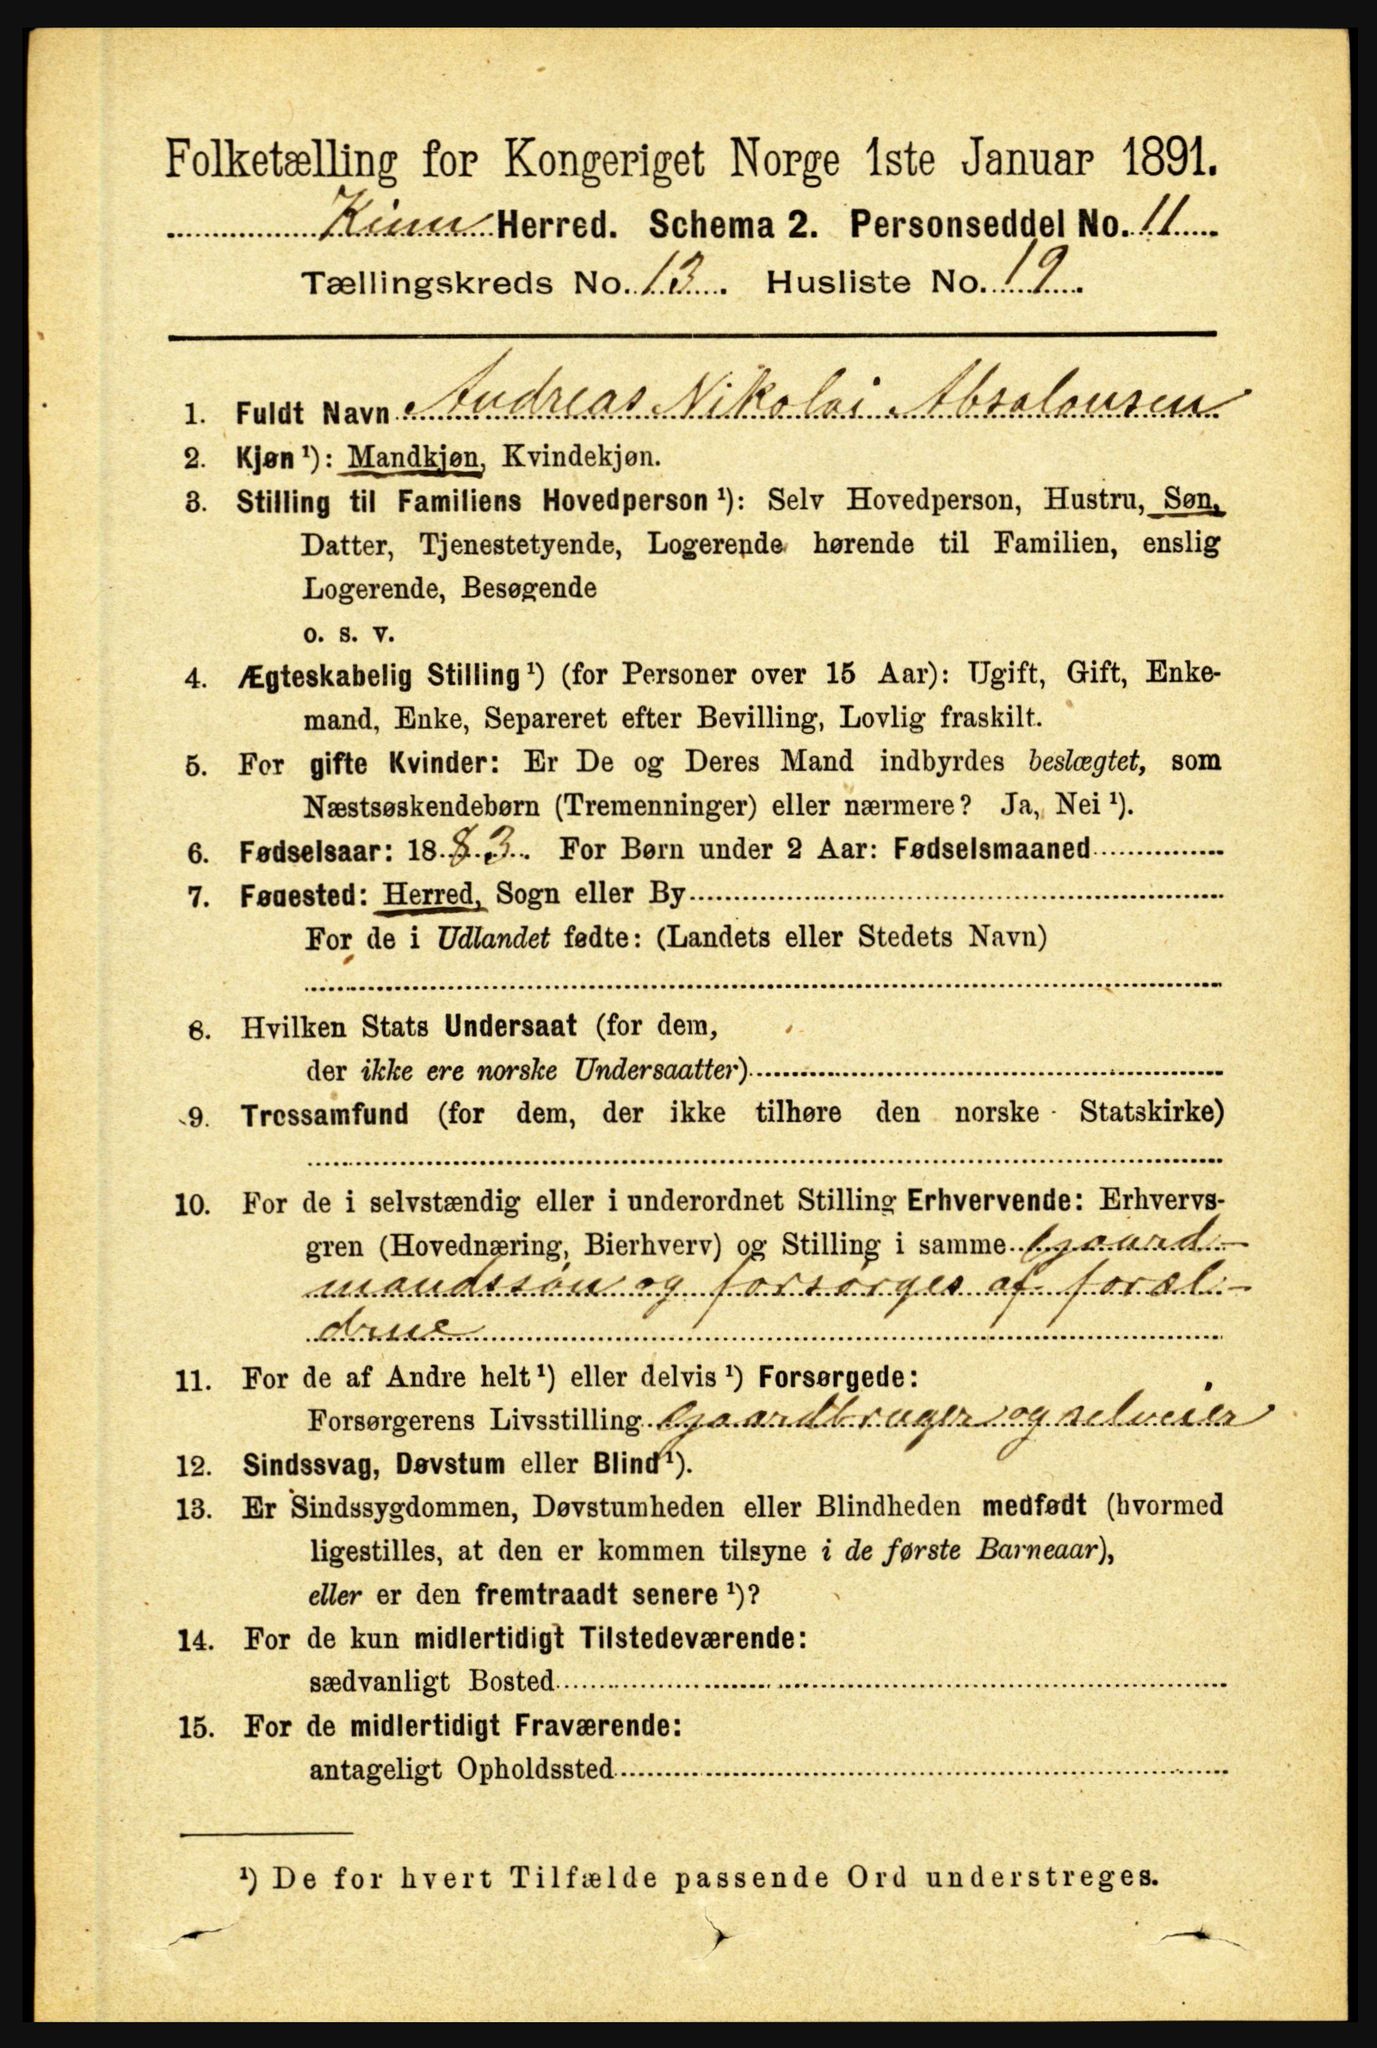 Folketælling for Kongeriget Norge 1ste Januar 1891.
Kinn Herred. Schema 2. Personseddel No. 11
Tællingskreds No. 13. Husliste No. 19.
1. Fuldt Navn Andreas Nikolai Absalonsen
2. Kjøn ¹): Mandkjøn, Kvindekjøn.
3. Stilling til Familiens Hovedperson ¹): Selv Hovedperson, Hustru, Søn,
Datter, Tjenestetyende, Logerende hørende til Familien, enslig
Logerende, Besøgende
o. s. v.
4. Ægteskabelig Stilling ¹) (for Personer over 15 Aar): Ugift, Gift, Enke-
mand, Enke, Separeret efter Bevilling, Lovlig fraskilt.
5. For gifte Kvinder: Er De og Deres Mand indbyrdes beslægtet, som
Næstsøskendebørn (Tremenninger) eller nærmere? Ja, Nei ¹).
6. Fødselsaar: 1883. For Børn under 2 Aar: Fødselsmaaned
7. Fødested: Herred, Sogn eller By
For de i Udlandet fødte: (Landets eller Stedets Navn)
8. Hvilken Stats Undersaat (for dem,
der ikke ere norske Undersaatter)
9. Trossamfund (for dem, der ikke tilhøre den norske Statskirke)
10. For de i selvstændig eller i underordnet Stilling Erhvervende: Erhvervs-
gren (Hovednæring, Bierhverv) og Stilling i samme Gaard-
mandssøn og forsørges af foræl-
drene
11. For de af Andre helt ¹) eller delvis ¹) Forsørgede:
Forsørgerens Livsstilling Gaardbruger og selveier
12. Sindssvag, Døvstum eller Blind ¹).
13. Er Sindssygdommen, Døvstumheden eller Blindheden medfødt (hvormed
ligestilles, at den er kommen tilsyne i de første Barneaar),
eller er den fremtraadt senere ¹)?
14. For de kun midlertidigt Tilstedeværende:
sædvanligt Bosted
15. For de midlertidigt Fraværende:
antageligt Opholdssted
¹) De for hvert Tilfælde passende Ord understreges.